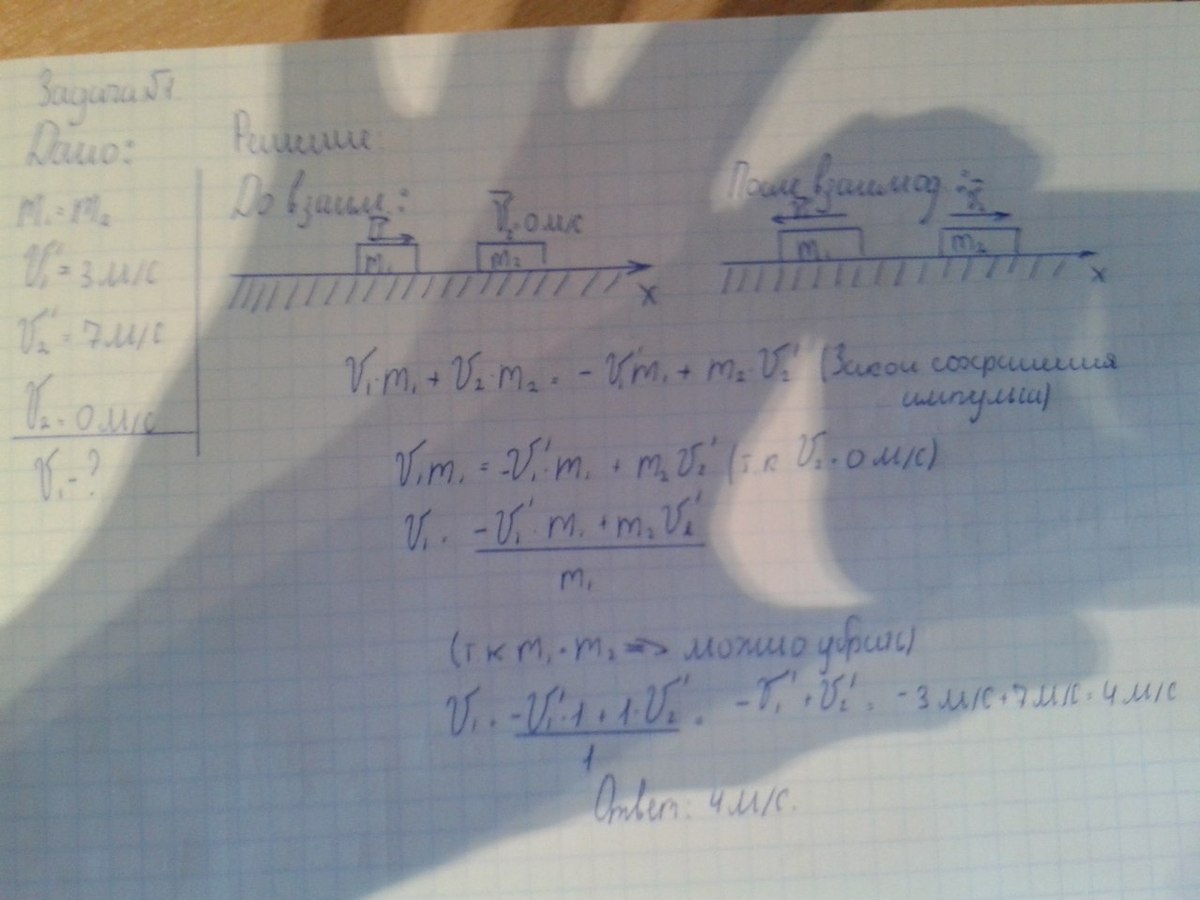 Задача №1
Дано:
m₁ = m₂
V₁' = 3 м/с
V₂' = 7 м/с
V₂ = 0 м/с
V₁ - ?
Решение
До взаим:
V₂ = 0 м/с
m₁ m₂
x
После взаимод.:
m₁ m₂
x
V₁·m₁ + V₂·m₂ = - V₁'m₁ + m₂·V₂' (Закон сохранения
импульса)
V₁m₁ = -V₁'·m₁ + m₂V₂' (т.к V₂ = 0 м/с)
V₁ = (-V₁'·m₁ + m₂V₂') / m₁
(т к m₁ = m₂ => можно убрать)
V₁ = (-V₁'·1 + 1·V₂') / 1 = -V₁' + V₂' = -3 м/с + 7 м/с = 4 м/с
Ответ: 4 м/с.